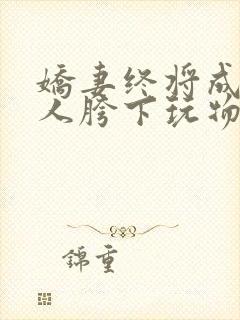 嬌妻终将成
人胯下玩物
錦重